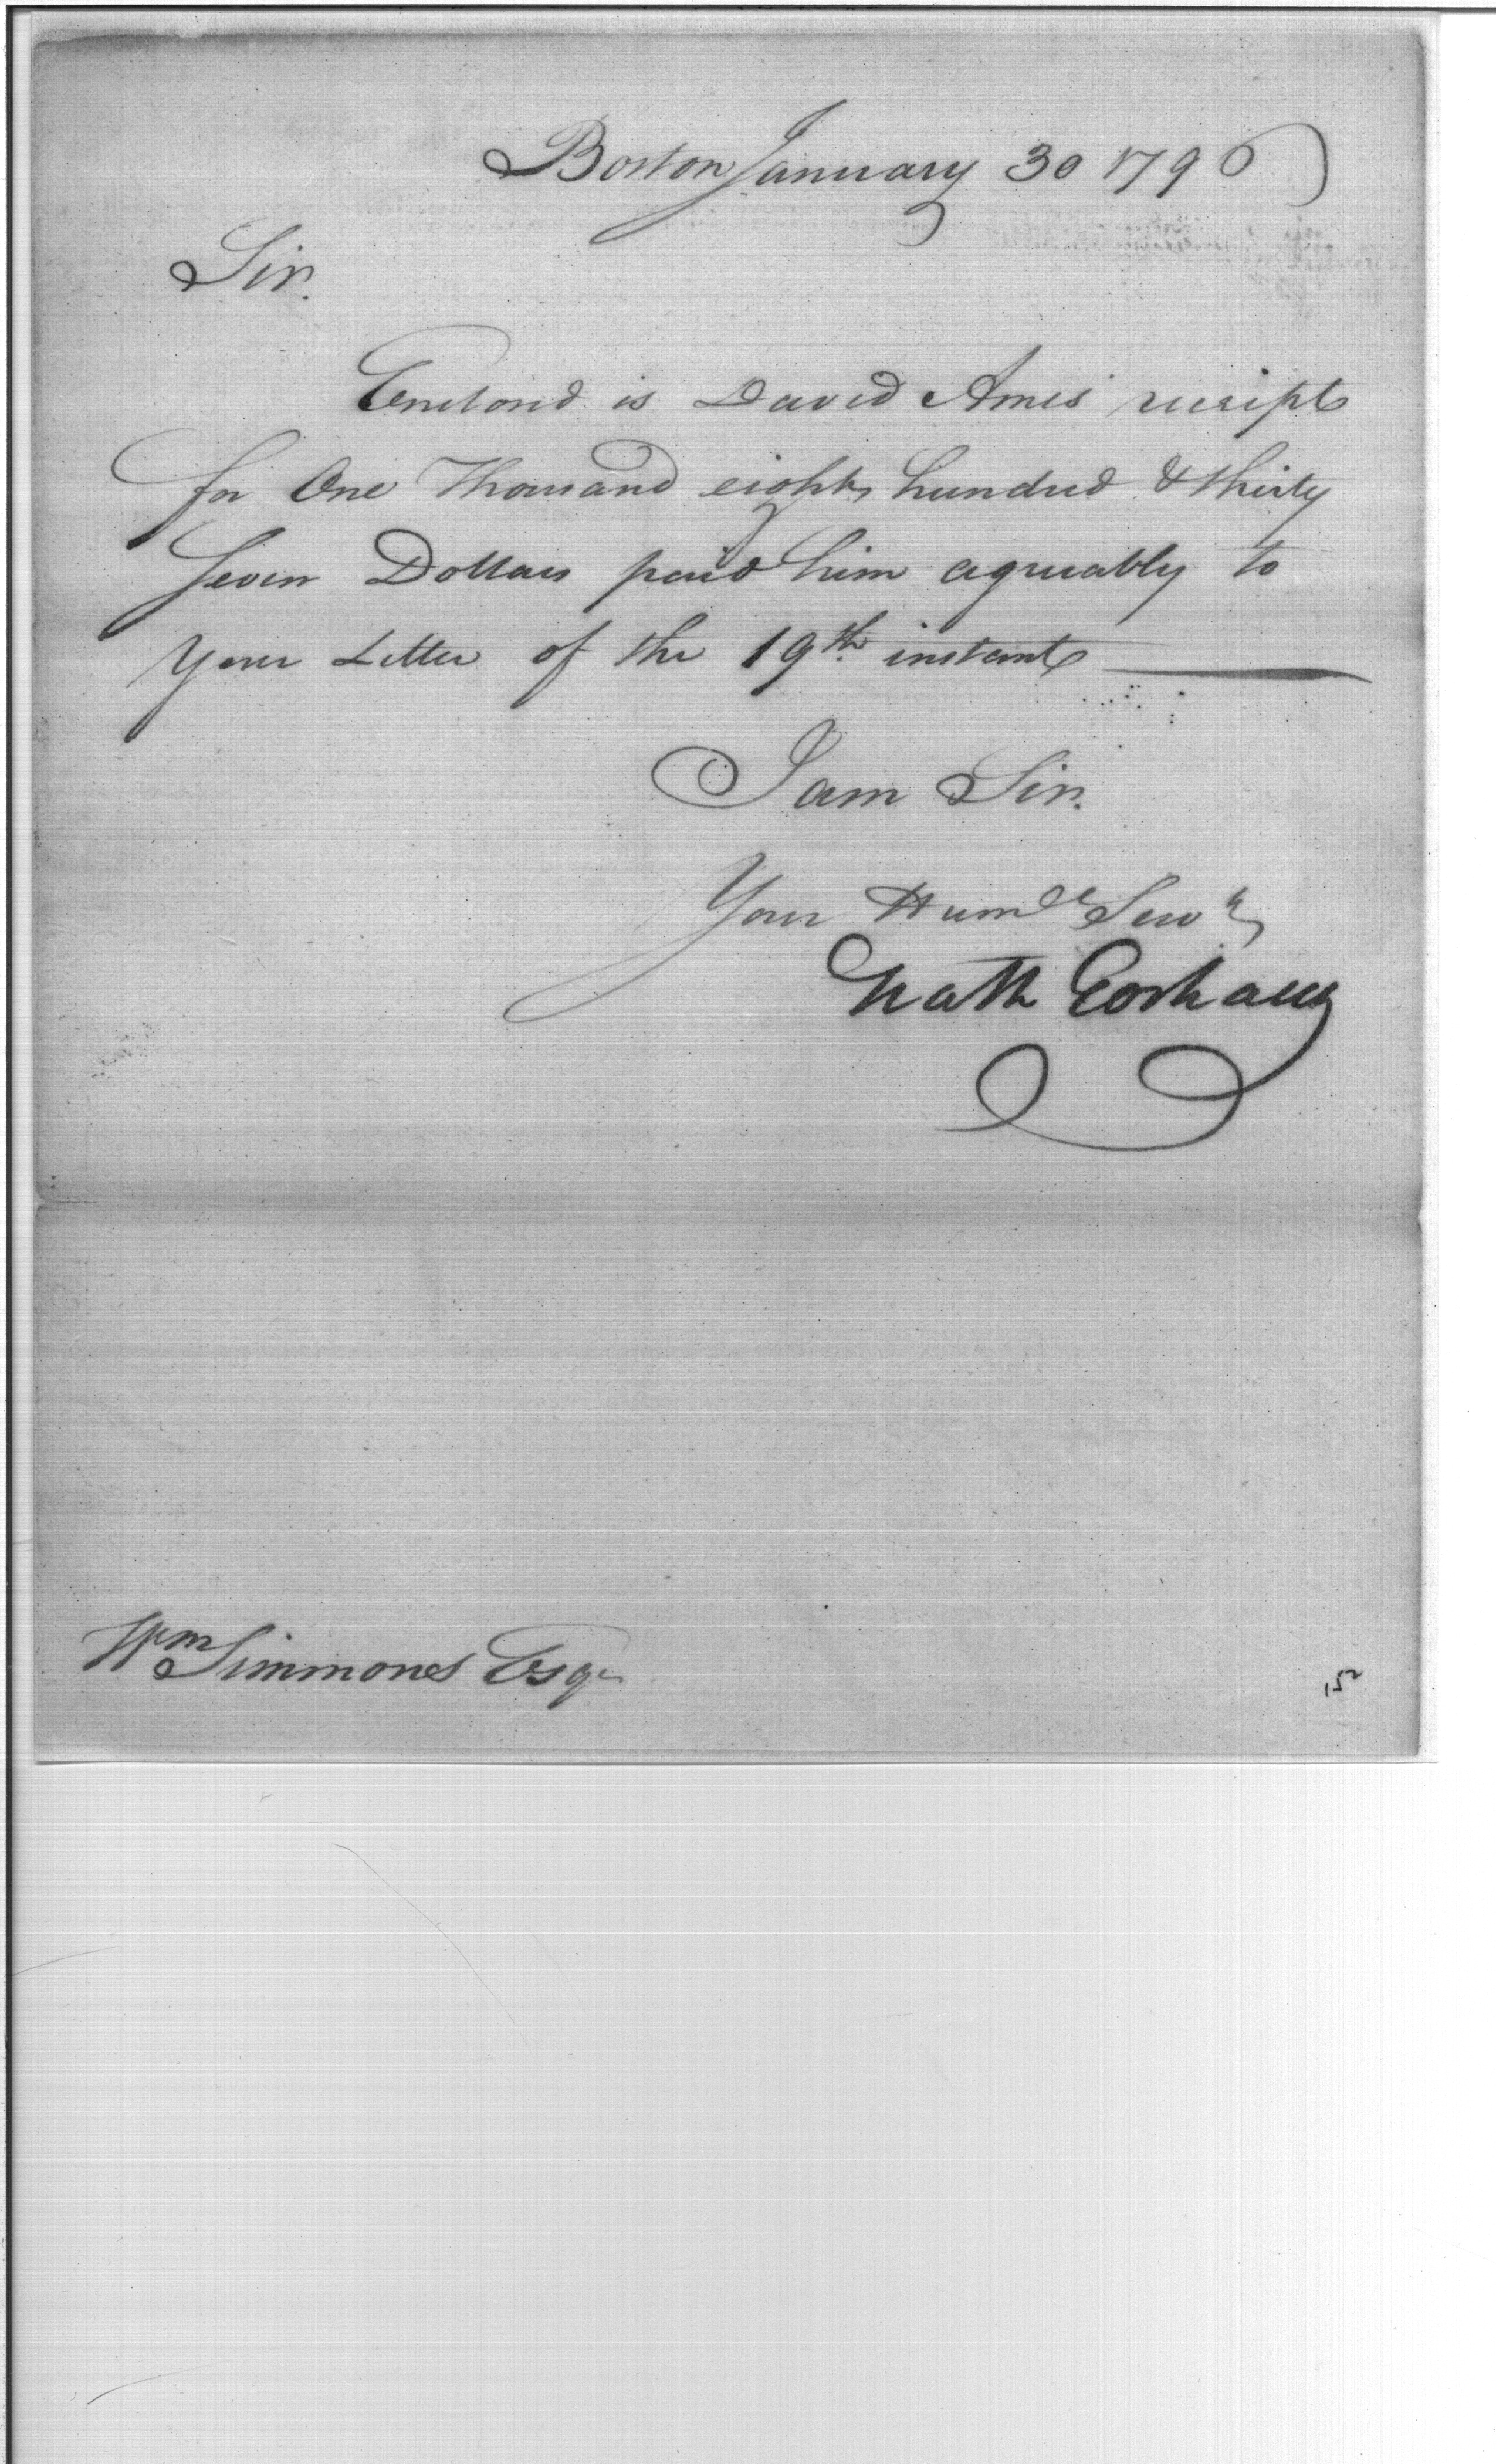 Boston January 30 1796
Sir.
Enclosed is David Ames receipt
for One Thousand eight hundred & thirty
seven Dollars paid him agreeably to
your Letter of the 19th instant
I am Sir.
Your Humle Servt
Nath Gorham
Wm Simmones Esqr